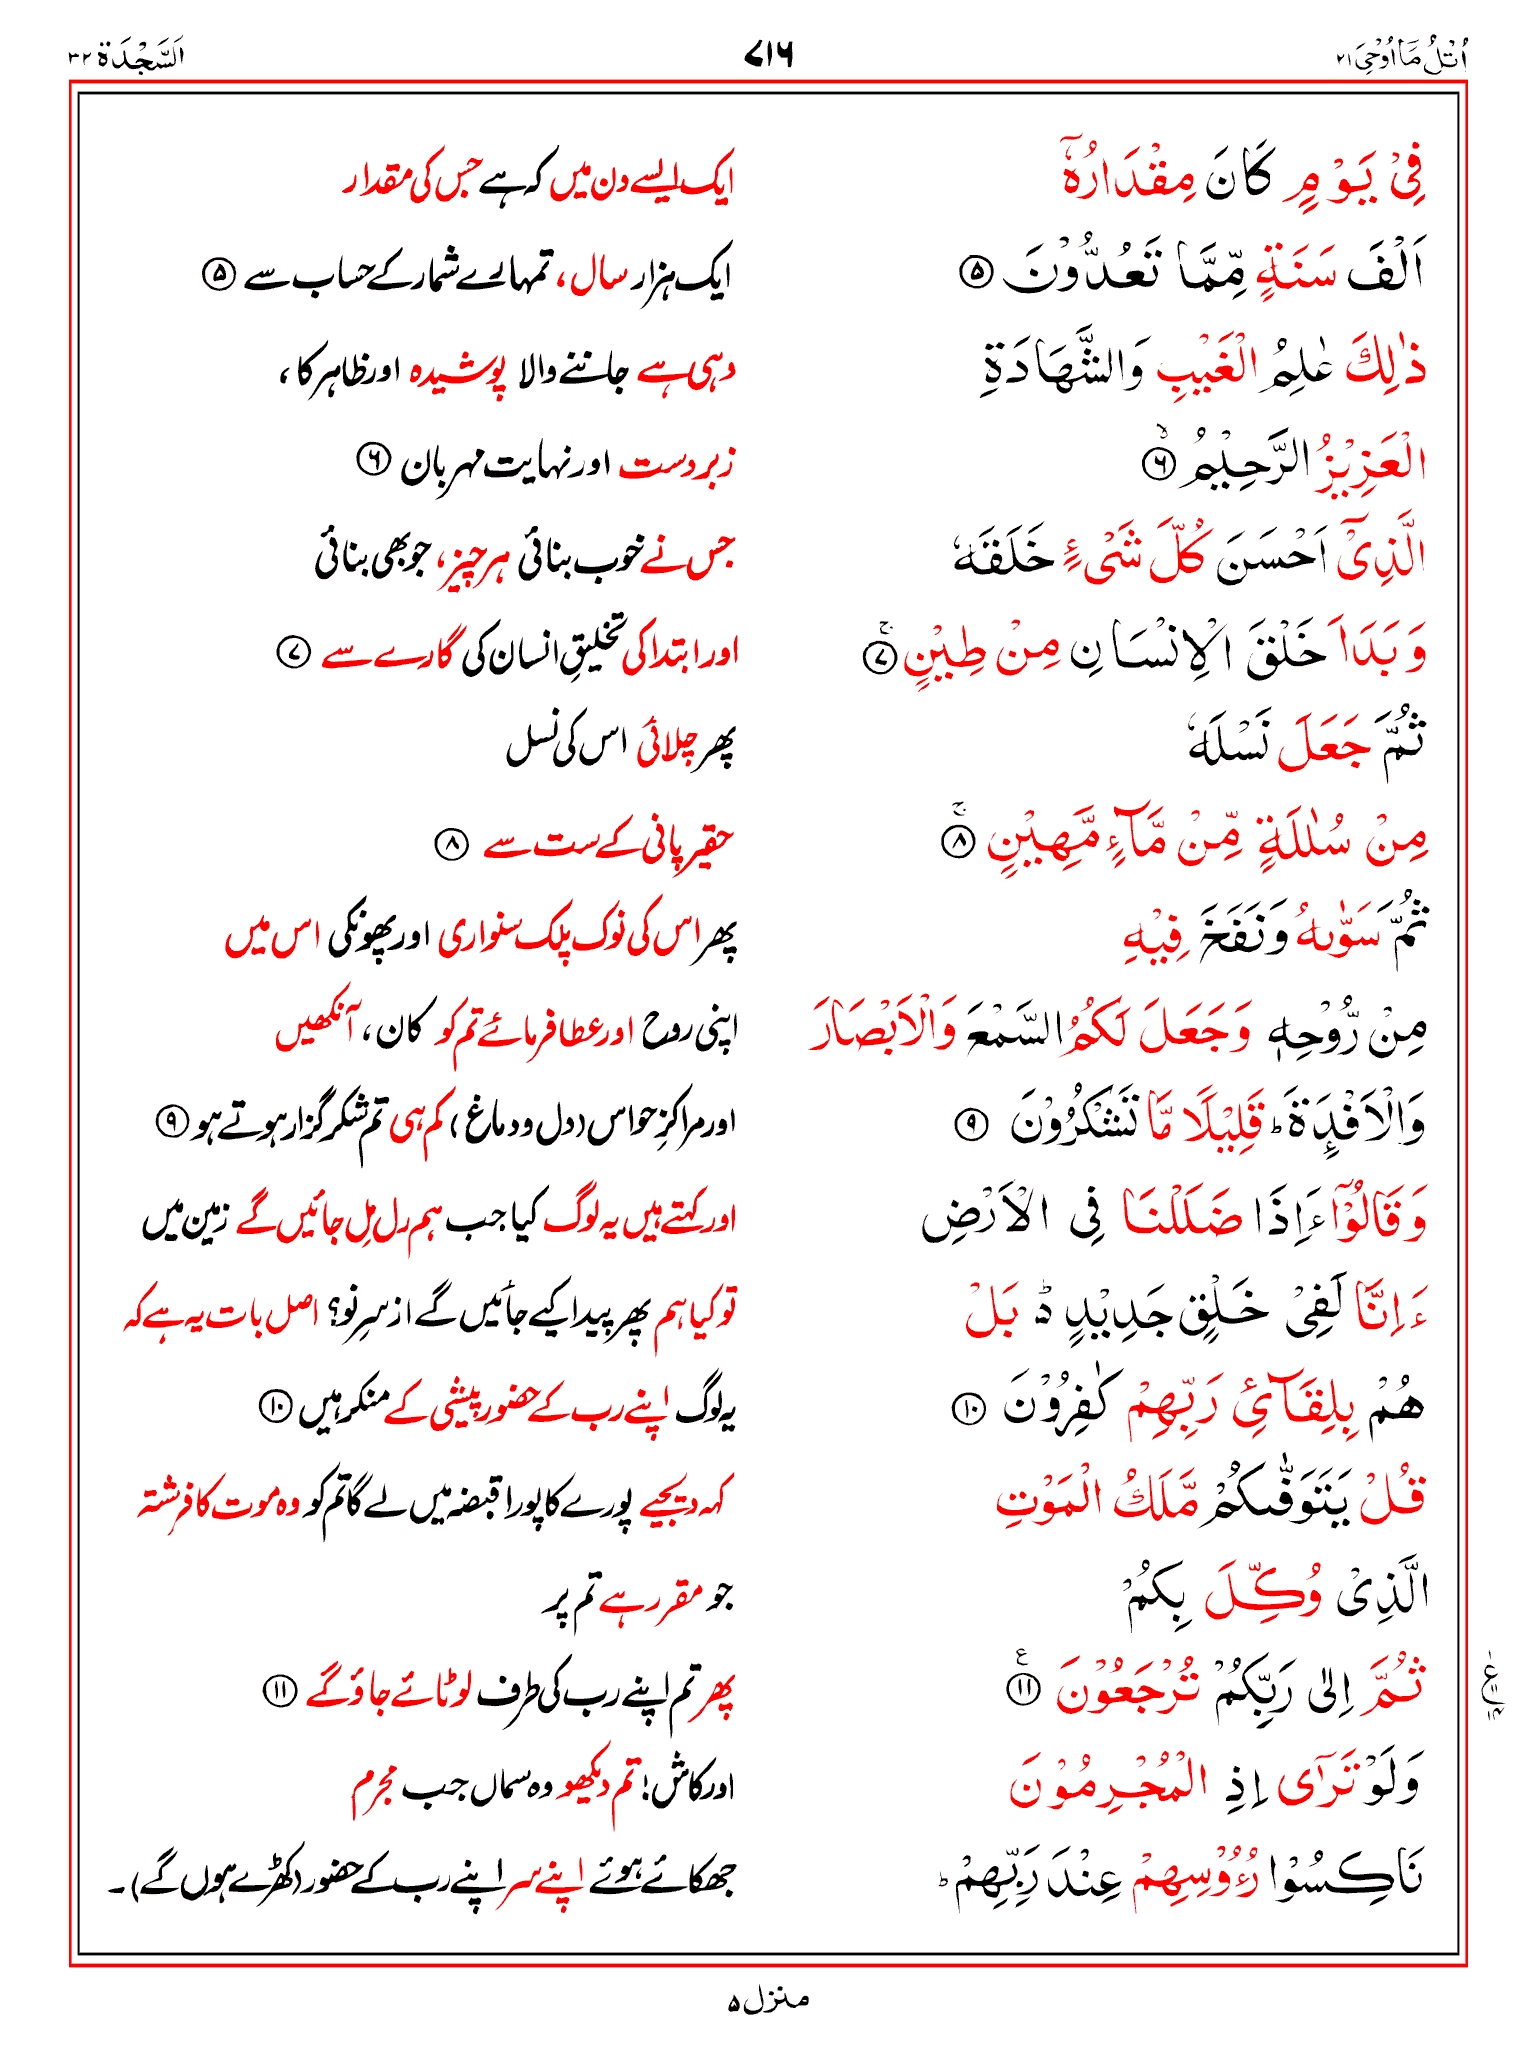 اُتْلُ مَآ اُوْحِیَ ۲۱ ۷۱۶ اَلسَّجْدَة ۳۲
فِیْ یَوْمٍ کَانَ مِقْدَارُهٗۤ ایک ایسے دن میں کہ ہے جس کی مقدار
اَلْفَ سَنَةٍ مِّمَّا تَعُدُّوْنَ ۵ ایک ہزار سال، تمہارے شمار کے حساب سے ۵
ذٰلِكَ عٰلِمُ الْغَیْبِ وَالشَّهَادَةِ وہی ہے جاننے والا پوشیدہ اور ظاہر کا،
الْعَزِیْزُ الرَّحِیْمُ ۶ۙ زبردست اور نہایت مہربان ۶
الَّذِیْۤ اَحْسَنَ کُلَّ شَیْءٍ خَلَقَهٗ جس نے خوب بنائی ہر چیز، جو بھی بنائی
وَبَدَاَ خَلْقَ الْاِنْسَانِ مِنْ طِیْنٍ ۷ۚ اور ابتدا کی تخلیقِ انسان کی گارے سے ۷
ثُمَّ جَعَلَ نَسْلَهٗ پھر چلائی اس کی نسل
مِنْ سُلٰلَةٍ مِّنْ مَّآءٍ مَّهِیْنٍ ۸ۚ حقیر پانی کے ست سے ۸
ثُمَّ سَوّٰىهُ وَنَفَخَ فِیْهِ پھر اس کی نوک پلک سنواری اور پھونکی اس میں
مِنْ رُّوْحِهٖ وَجَعَلَ لَکُمُ السَّمْعَ وَالْاَبْصَارَ اپنی روح اور عطا فرمائے تم کو کان، آنکھیں
وَالْاَفْـِٕدَةَ ؕ قَلِیْلًا مَّا تَشْکُرُوْنَ ۹ اور مراکزِ حواس (دل و دماغ) کم ہی تم شکر گزار ہوتے ہو ۹
وَقَالُوْۤا ءَاِذَا ضَلَلْنَا فِی الْاَرْضِ اور کہتے ہیں یہ لوگ کیا جب ہم رل مِل جائیں گے زمین میں
ءَاِنَّا لَفِیْ خَلْقٍ جَدِیْدٍ ؕ بَلْ تو کیا ہم پھر پیدا کیے جائیں گے از سرِ نو؟ اصل بات یہ ہے کہ
هُمْ بِلِقَآئِ رَبِّهِمْ کٰفِرُوْنَ ۱۰ یہ لوگ اپنے رب کے حضور پیشی کے منکر ہیں ۱۰
قُلْ یَتَوَفّٰىکُمْ مَّلَكُ الْمَوْتِ کہہ دیجیے پورے کا پورا قبضہ میں لے گا تم کو وہ موت کا فرشتہ
الَّذِیْ وُکِّلَ بِکُمْ جو مقرر ہے تم پر
ثُمَّ اِلٰی رَبِّکُمْ تُرْجَعُوْنَ ۱۱ع پھر تم اپنے رب کی طرف لوٹائے جاؤ گے ۱۱
وَلَوْ تَرٰۤی اِذِ الْمُجْرِمُوْنَ اور کاش! تم دیکھو وہ سماں جب مجرم
نَاکِسُوْا رُءُوْسِهِمْ عِنْدَ رَبِّهِمْ ؕ جھکائے ہوئے اپنے سر اپنے رب کے حضور (کھڑے ہوں گے)۔
منزل ۵